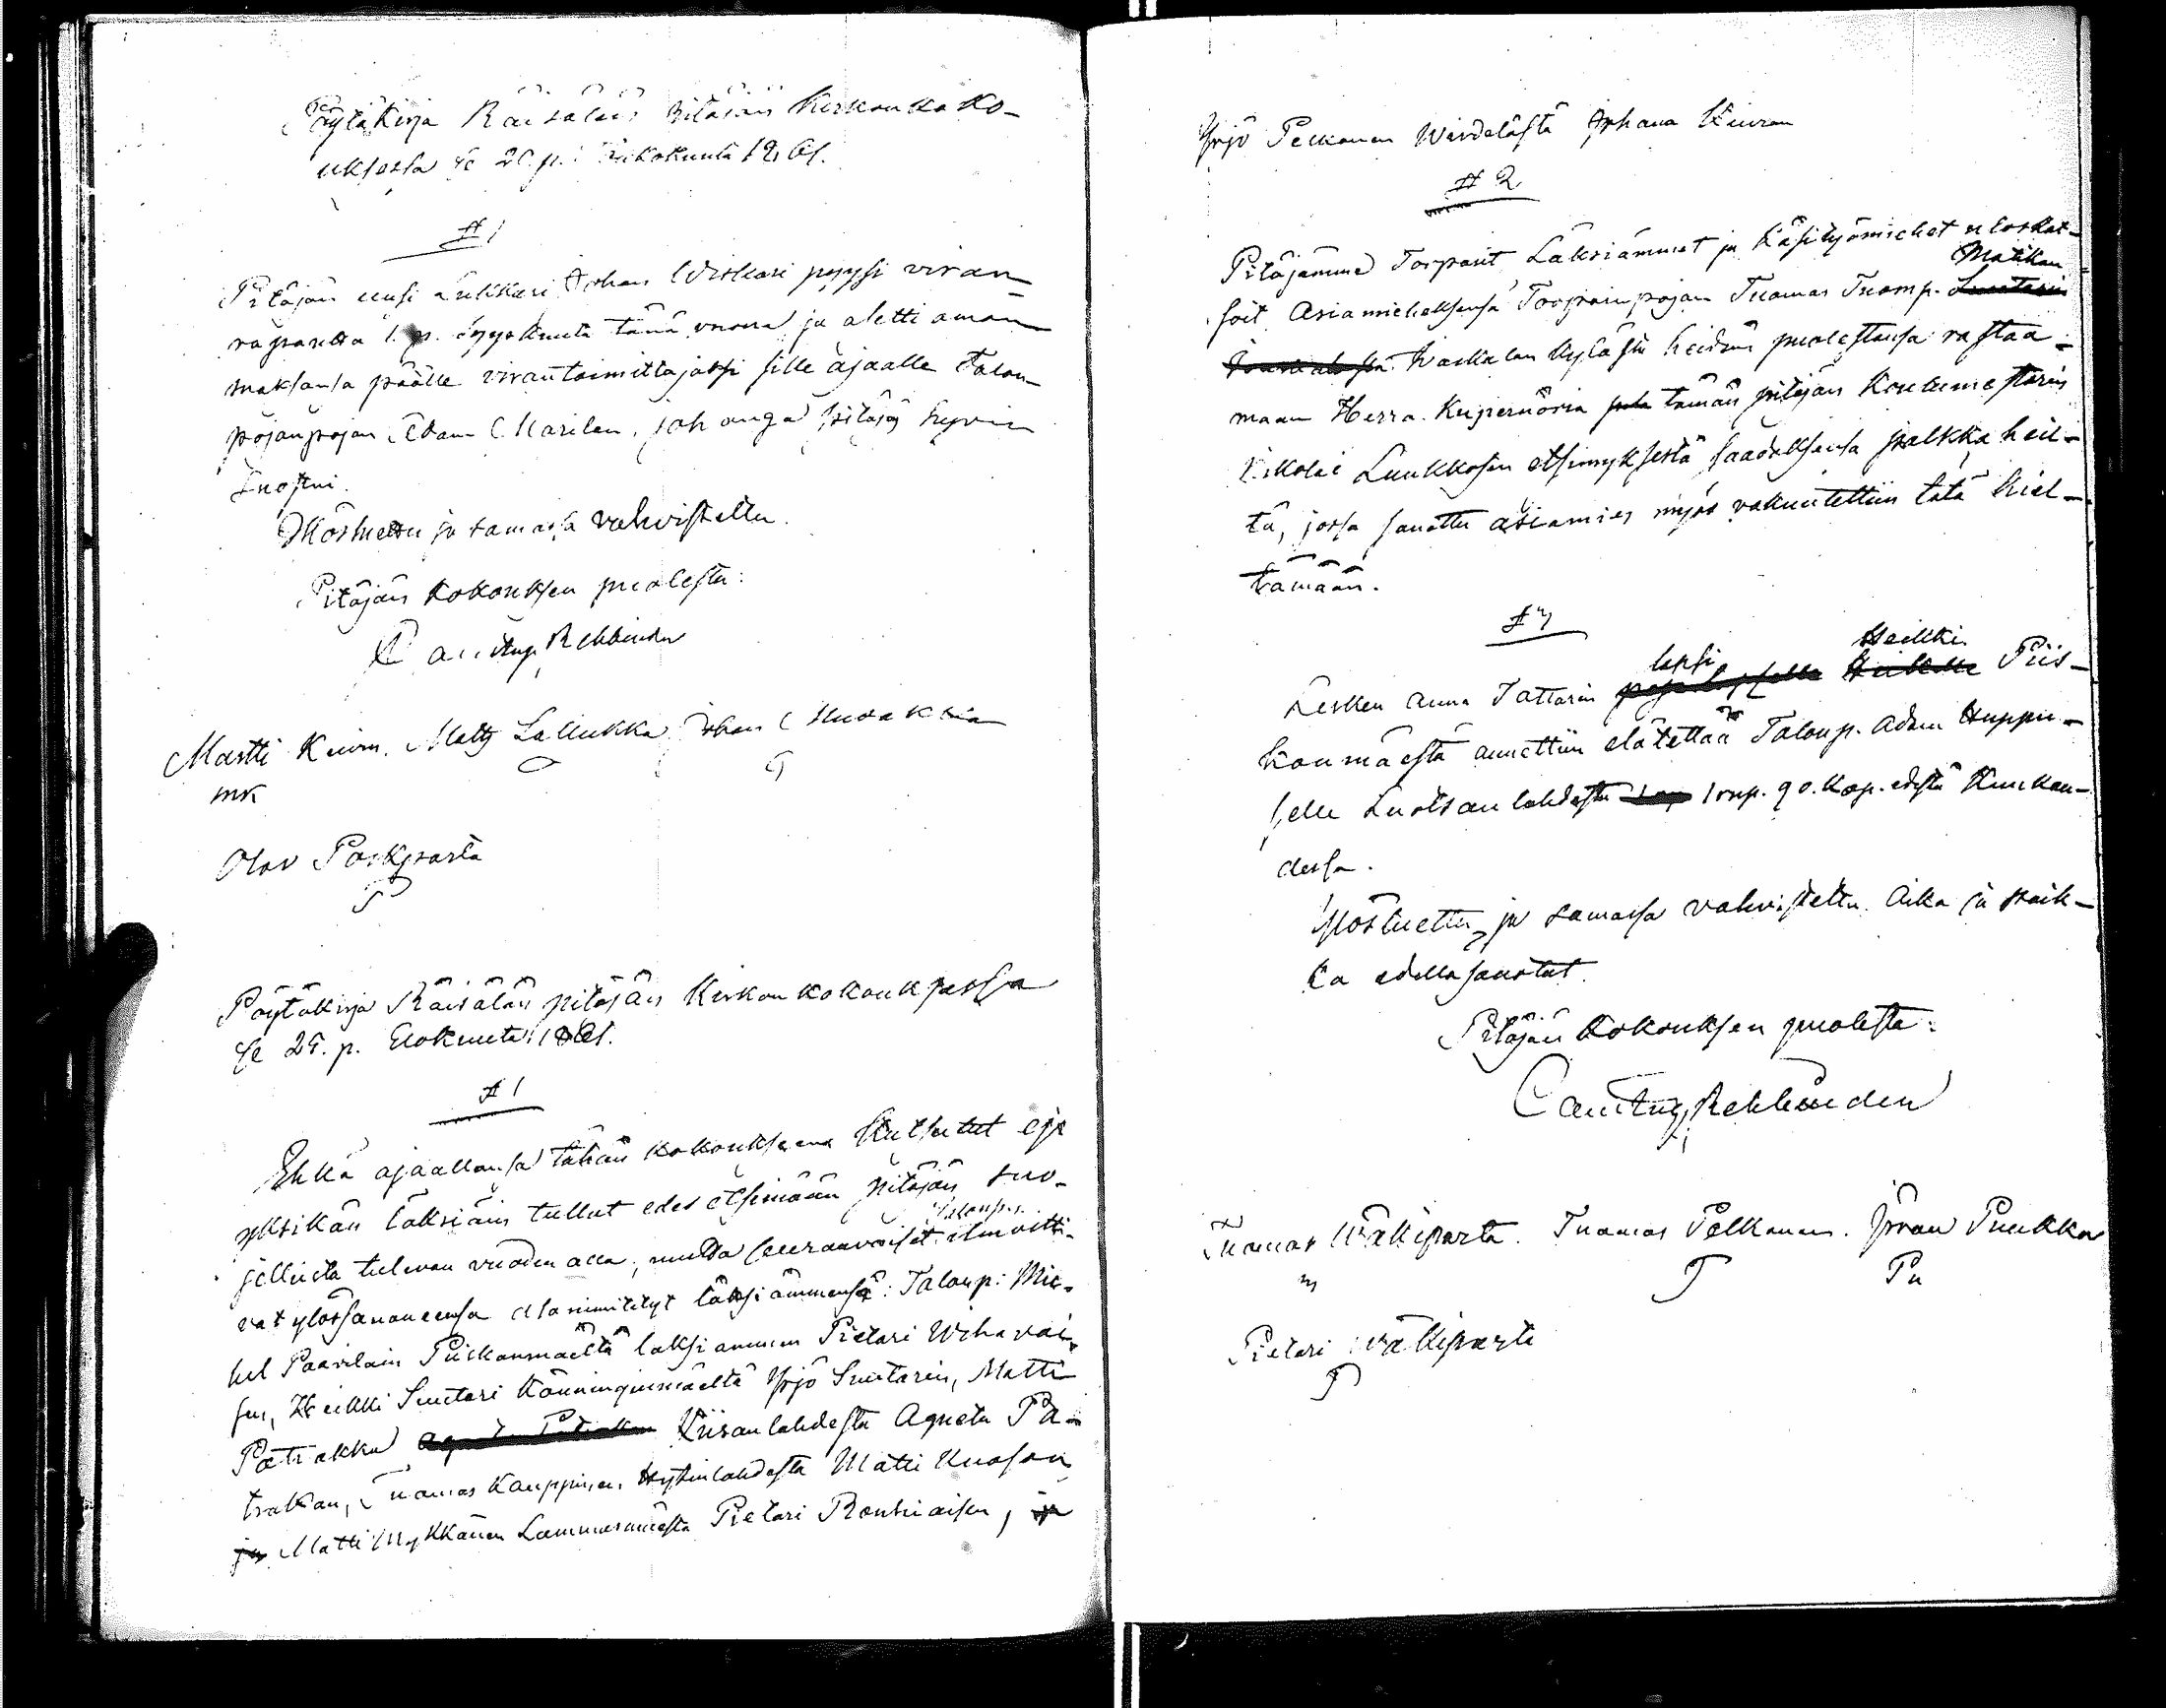 Pöytäkirja Räisälän pitäjän Kirkonkoko-
uksessa se 20. p. 1861.
§ 1
Pitäjän uusi Lukkari Johan Wirkari pyysi viran
vapautta 1. p. Syyskuuta tänä vuonna ja aletti aman
maksunsa päälle virantoimittajaksi sille ajaalle Talon-
pojanpojan Adam Marilan, johonga pitäjä hyvin
suostui.
Ylösluettu ja samassa vahvistettu.
Pitäjän Kokouksen puolesta:
C. Rehbinder
Martti Kiuru. Matts Lallukka Johan Hudakka
mk
Olov Paskparta
Pöytäkirja Räisälän pitäjän Kirkon kokouksessa
se 25. p. Elokuuta 1861.
§ 1
Ehkä ajaallansa tähän kokoukseen Kutsutut eje
yksikän läksiäin tullut edes etsimään pitäjän suo-
jelluista tulevan vuoden alla, mutta seuraavaiset Talonp. ilmoitti-
vat ylössanoneensa alanimitetyt läksiämmensä: Talonp: Mic-
kel Paavilain Piiskonmäeltä läksiämmen Pietari Wihavai-
sen, Heikki Suutari Könninginmäeltä Yrjö Suutarin, Matti
Päträkkä Kiisanlahdesta Agneta Pä-
trakan, Tuomas Kauppinen Hytinlahdesta Matti Kuosan
ja Matti Mykkänen Lammasmäestä Pietari Rontuaisen, ja
Yrjö Pelkonen Wirdelästä Johana Kiurun
§ 2
Pitäjämme Torparit Läksiämmet ja Käsityömiehet uloskat-
soit Asiamieheksensä Torparinpojan Tuomas Tuomp. Matikan
Kaukolan Kylästä heidän puolestansa vastaa-
maan Herra Kupernörin tämän pitäjän Koulumestarin
Nikolai Luukkosen etsimyksestä saadaksensa palkka heil-
tä, jossa sanottu asiamies myös vakuutettiin tätä kiel-
tämään.
§ 3
Lesken Anna Tattarin lapsi Heikki Piis-
konmäestä annettiin elätettää Talonp. Adam Huppu-
selle Luotsanlahdesta 1 rup. 90. Kop. edestä Kuukau-
dessa.
Ylösluettu ja samassa vahvistettu. Aika ja paik-
ka edellä sanotut.
Pitäjän Kokouksen puolesta:
C. Rehbinder
Tuomas Wäkiparta. Tuomas Pelkonen. Jöran Puukka
m T Pu
Pietari Wäkiparta
P